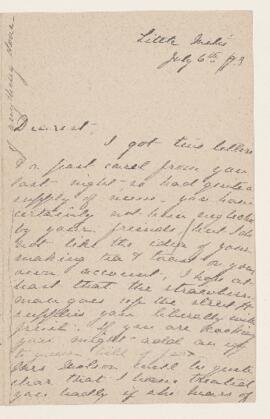 Little Metis
July 6th /93
Dearest
I got two letters
& a post card from you
last night, so had quite a
supply of news. You have
certainly not been neglected
by your friends, but I do
not like the idea of your
making tea & toast on your
own account. I hope at
least that the strawberry
man goes up the street &
supplies you liberally with
fruit. If you are
you might add an
Mrs will be quite
clear that I have
you badly if she hears of
anything done